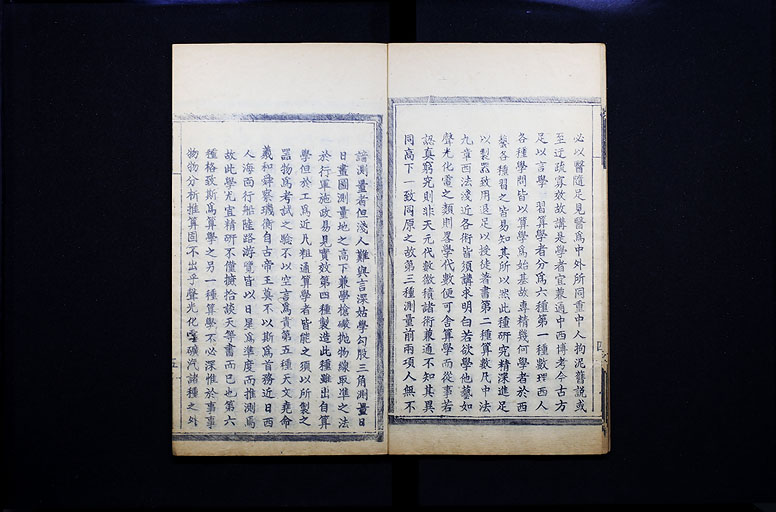 必以醫隨足見醫爲中外所同重中人拘泥舊説或
至迂疏寡效故講是學者宜兼通中西博考今古方
足以言學　習算學者分爲六種第一種數理西人
各種學問皆以算學爲始基故專精幾何學者於西
藝各種習之皆易知其所以然此種研究精深進足
以製器致用退足以授徒著書第二種算數凡中法
九章西法淺近各術皆須講求明白若欲學他藝如
聲光化電之類則畧學代數便可舍算學而從事若
認真窮究則非天元代數微積諸術兼通不知其異
同高下一致同原之故第三種測量前兩項人無不
諳測量者但淺人難與言深姑學勾股三角測量日
日晝圖測量地之高下兼學槍礮拋物線取準之法
於行軍施政易見實效第四種製造此種雖出自算
學但於工爲近凡粗通算學者皆能之須以所製之
器物爲考試之驗不以空言爲貴第五種天文堯命
羲和舜察璣衡自古帝王莫不以斯爲首務近日西
人海面行船陸路游覽皆以日星爲準度而推測爲
故此學尤宜精研不僅摭拾談天等書而已也第六
種格致斯爲算學之另一種算學不必深惟於事事
物物分析推算固不出乎聲光化電礦汽諸種之外